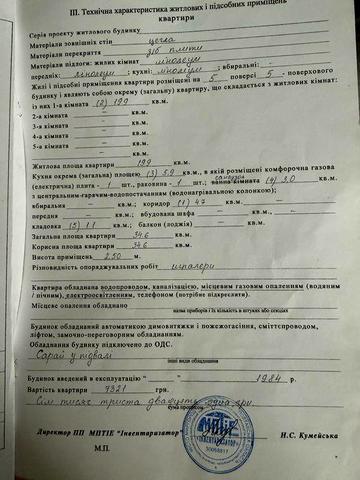 III. Технічна характеристика житлових і підсобних приміщень
квартири
Серія проекту житлового будинку
Матеріали зовнішніх стін цегла
Матеріали перекриття з/б плити
Матеріали підлоги: жилих кімнат лінолеум
передніх: лінолеум ; кухні: лінолеум ; вбиральні: -
Жилі і підсобні приміщення квартири розміщені на 5 поверсі 5 - поверхового
будинку і являють собою окрему (загальну) квартиру, що складається з житлових кімнат:
із них 1-а кімната (2) 19.9 кв.м.
2-а кімната – кв.м.
3-я кімната – кв.м.
4-а кімната – кв.м.
5-а кімната – кв.м.
кв.м.
Житлова площа квартири 19.9 кв.м.
Кухня окрема (загальна) площею (3) 5.9 кв.м., в якій розміщені комфорочна газова
(електрична) плита - 1 шт., раковина - 1 шт., санвузол ванна кімната (4) 3.0 кв.м.
з центральним-гарячим-водопостачанням (водонагрівальною колонкою);
вбиральня – кв.м.; коридор (1) 4.7 кв.м.
передня – кв.м.; вбудована шафа – кв.м.; –
кладова (5) 1.1 кв.м.; балкон (лоджія) – кв.м.
Загальна площа квартири 34.6 кв.м.
Корисна площа квартири 34.6 кв.м.
Висота приміщень 2.50 м.
Різновидність опоряджувальних робіт шпалери
Квартира обладнана водопроводом, каналізацією, місцевим газовим опаленням (водяним
/ пічним), електроосвітленням, телефоном (потрібне підкреслити).
Місцеве опалення обладнано
назва приборів і їх кількість в штуках або секціях
Будинок обладнаний автоматикою димовитяжки і пожежогасіння, сміттєпроводом,
ліфтом, замочно-переговорним обладнанням.
Обладнання будинку підключено до ОДС.
Сарай у підвалі
інші види обладнання
Будинок введений в експлуатацію " " 1984 р.
Вартість квартири 7321 грн.
Сім тисяч триста двадцять одна грн.
сума прописом
Директор ПП МПТІЕ "Інвентаризатор" Н.С. Кумейська
М.П.
МПТІЕ
"ІНВЕНТАРИЗАТОР"